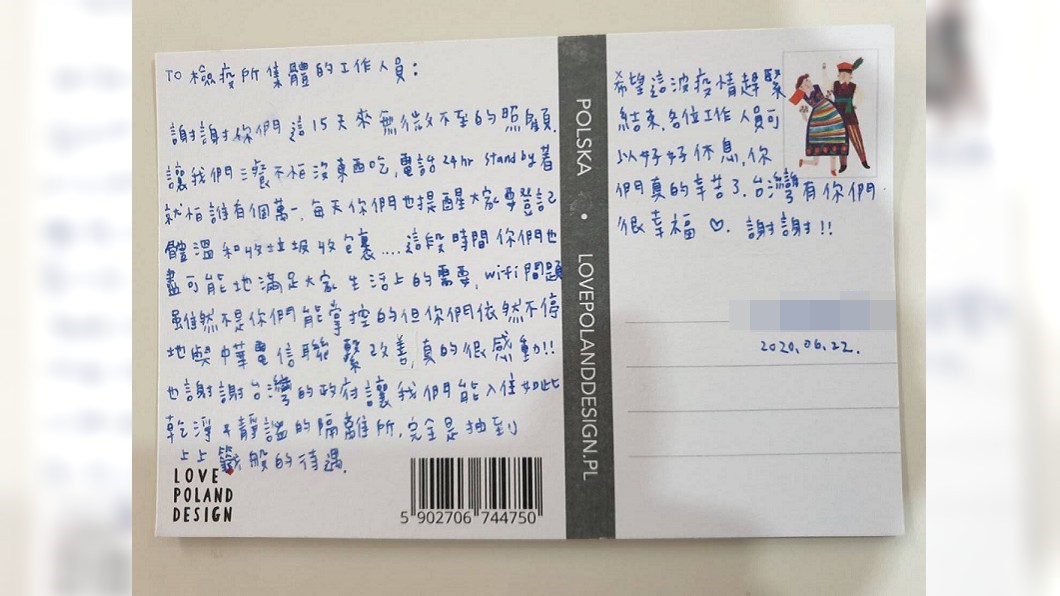 TO 檢疫所集體的工作人員：
謝謝你們這15天來無微不至的照顧.
讓我們三餐不怕沒東西吃,電話24hr stand by著
就怕誰有個萬一.每天你們也提醒大家要登記
體溫和收垃圾收包裹....這段時間你們也
盡可能地滿足大家生活上的需要, wifi問題
雖然不是你們能掌控的但你們依然不停
地與中華電信聯繫改善,真的很感動!!
也謝謝台灣的政府讓我們能入住如此
乾淨&靜謐的隔離所,完全是抽到
上上籤般的待遇.
LOVE
POLAND
DESIGN
5 902706 744750
POLSKA • LOVEPOLANDDESIGN.PL
希望這波疫情趕緊
結束,各位工作人員可
以好好休息,你
們真的辛苦了.台灣有你們
很幸福♡. 謝謝!!
2020.06.22.